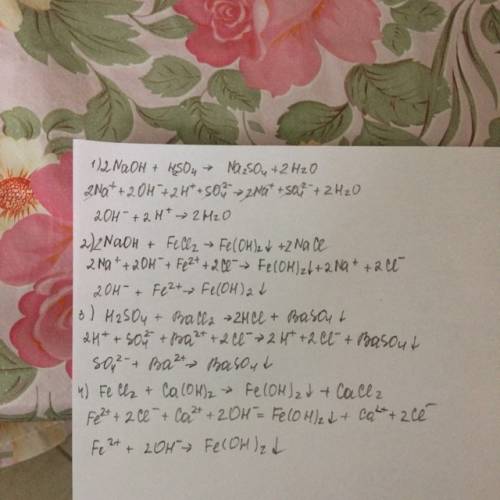 1) 2NaOH + H₂SO₄ → Na₂SO₄ + 2H₂O
2Na⁺ + 2OH⁻ + 2H⁺ + SO₄²⁻ → 2Na⁺ + SO₄²⁻ + 2H₂O
2OH⁻ + 2H⁺ → 2H₂O
2) 2NaOH + FeCl₂ → Fe(OH)₂↓ + 2NaCl
2Na⁺ + 2OH⁻ + Fe²⁺ + 2Cl⁻ → Fe(OH)₂↓ + 2Na⁺ + 2Cl⁻
2OH⁻ + Fe²⁺ → Fe(OH)₂↓
3) H₂SO₄ + BaCl₂ → 2HCl + BaSO₄↓
2H⁺ + SO₄²⁻ + Ba²⁺ + 2Cl⁻ → 2H⁺ + 2Cl⁻ + BaSO₄↓
SO₄²⁻ + Ba²⁺ → BaSO₄↓
4) FeCl₂ + Ca(OH)₂ → Fe(OH)₂↓ + CaCl₂
Fe²⁺ + 2Cl⁻ + Ca²⁺ + 2OH⁻ = Fe(OH)₂↓ + Ca²⁺ + 2Cl⁻
Fe²⁺ + 2OH⁻ → Fe(OH)₂↓